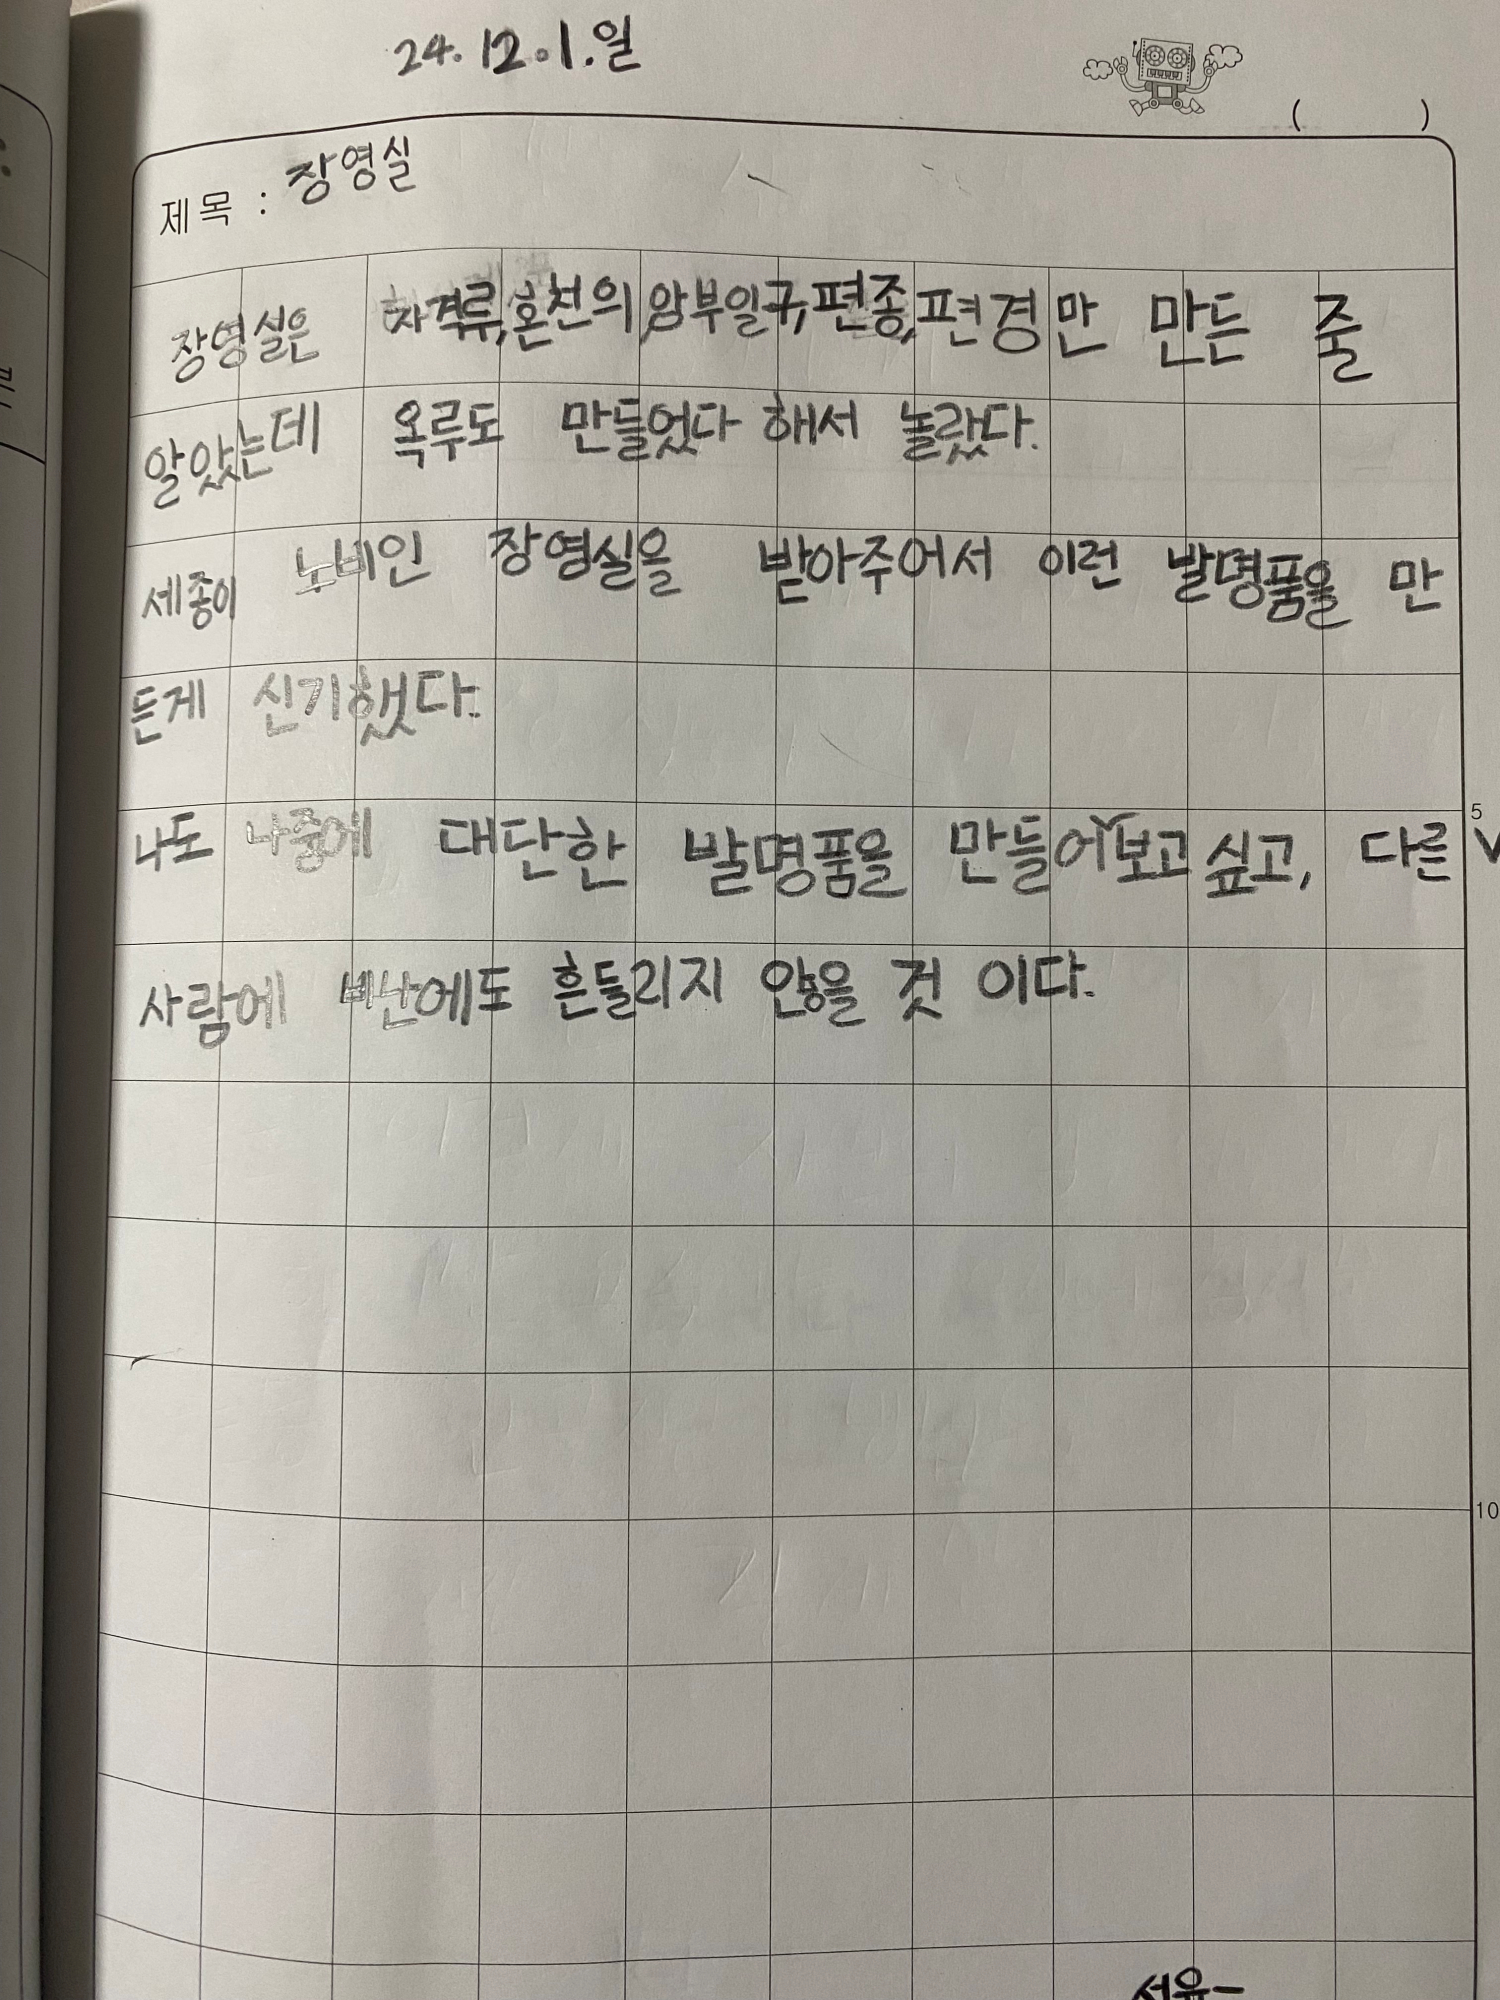 24. 12. 1. 일
( )
제목 : 장영실
장영실은 자격류, 혼천의, 앙부일구, 편종, 편경만 만든 줄
알았는데 옥루도 만들었다 해서 놀랐다.
세종이 노비인 장영실을 받아주어서 이런 발명품을 만
든게 신기했다.
나도 나중에 대단한 발명품을 만들어 보고 싶고, 다른
5
사람에 비난에도 흔들리지 않을 것 이다.
10